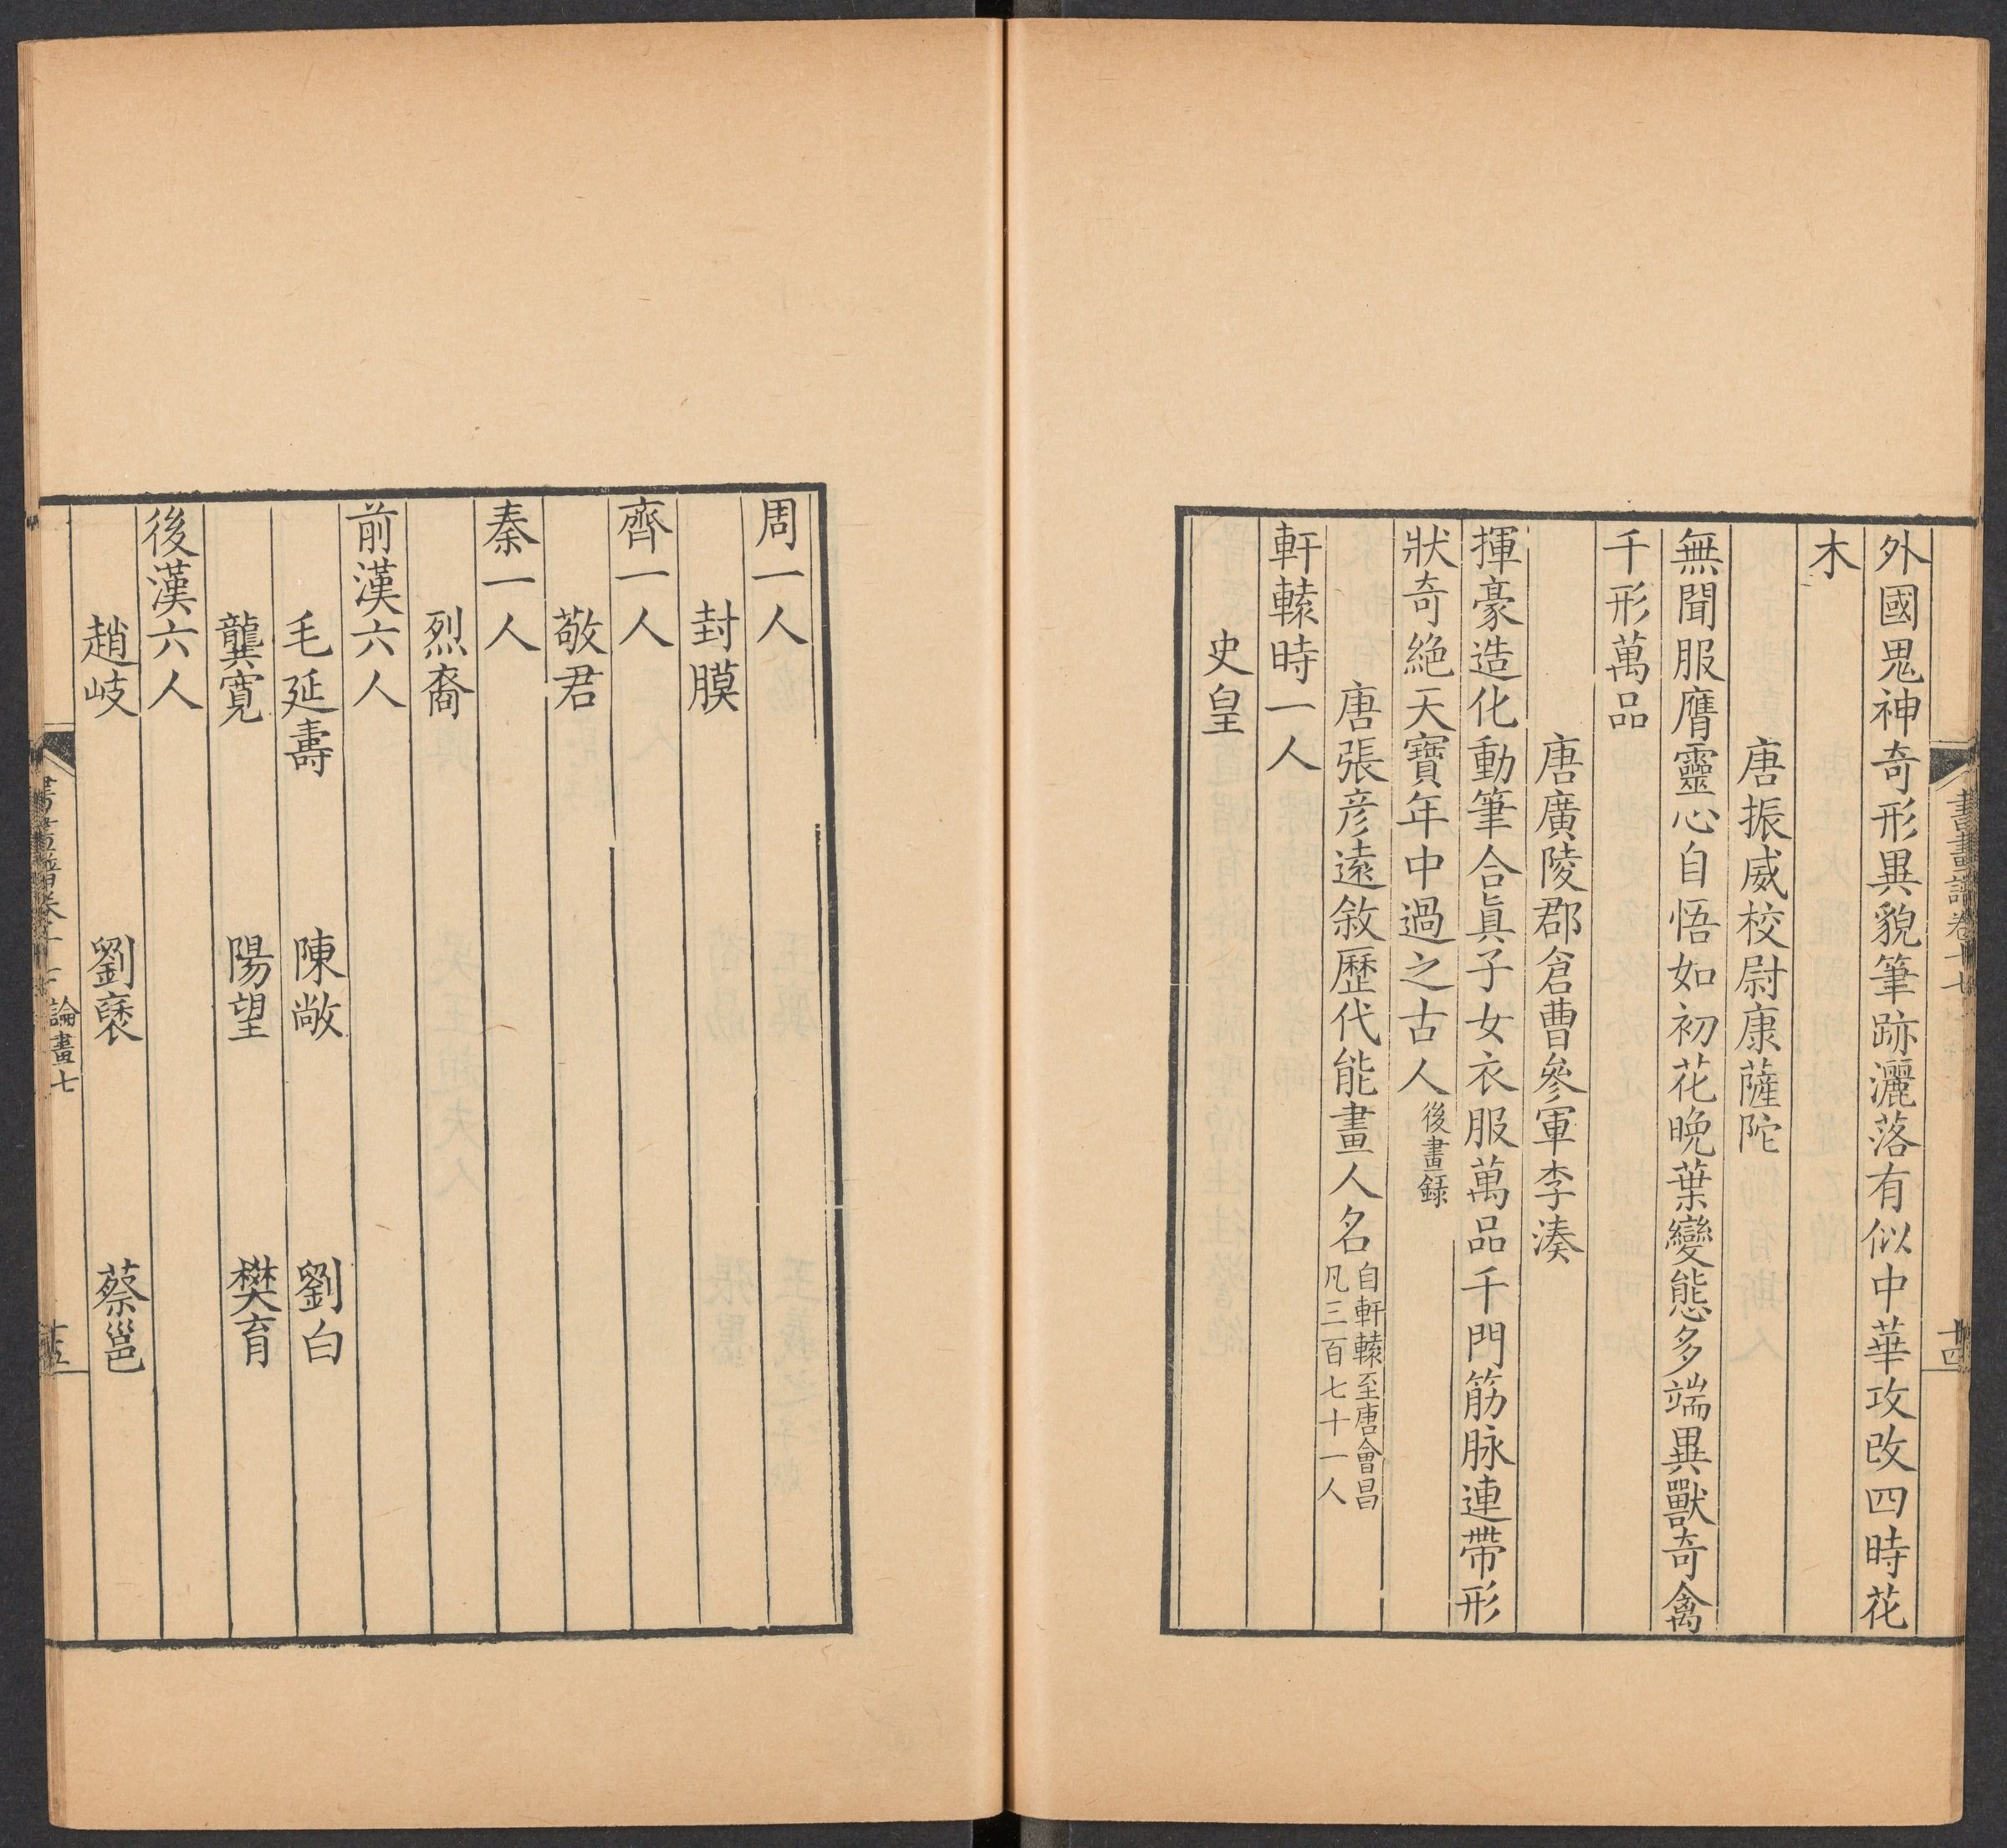 書畫譜卷十七
十四
外國鬼神奇形異貌筆跡灑落有似中華攻改四時花
木
唐振威校尉康薩陀
無聞服膺靈心自悟如初花晚葉變態多端異獸奇禽
千形萬品
唐廣陵郡倉曹參軍李湊
揮豪造化動筆合眞子女衣服萬品千門筋脉連帶形
狀奇絶天寶年中過之古人後畫錄
唐張彦遠敘歷代能畫人名自軒轅至唐會昌
凡三百七十一人
軒轅時一人
史皇
周一人
封膜
齊一人
敬君
秦一人
烈裔
前漢六人
毛延壽 陳敞 劉白
龔寬 陽望 樊育
後漢六人
趙岐 劉襃 蔡邕
書畫譜卷十七 論畫七
十五